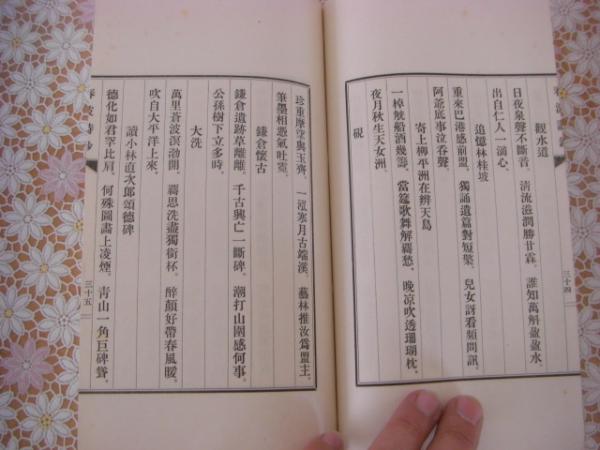 觀水道
日夜泉聲不斷音。清流滋潤勝甘霖。誰知萬斛盈盈水。
出自仁人一滴心。
追憶林桂坡
重來巴港感前盟。獨誦遺篇對短檠。兒女訝看頻問訊。
阿爺底事泣吞聲。
寄上柳平洲在辨天島
一棹觥船酒幾籌。當筵歌舞解羈愁。晚凉吹透珊瑚枕。
夜月秋生天女洲。
硯
三十四
珍重摩挲與玉齊。一泓寒月古端溪。藝林推汝爲盟主。
筆墨相憑氣吐霓。
鎌倉懷古
鎌倉遺跡草離離。千古興亡一斷碑。潮打山圍感何事。
公孫樹下立多時。
大洗
萬里蒼波溟渤開。羈思洗盡獨銜杯。醉顏好帶春風暖。
吹自大平洋上來。
讀小林直次郎頌德碑
德化如君罕比肩。何殊圖畫上凌煙。靑山一角巨碑聳。
三十五